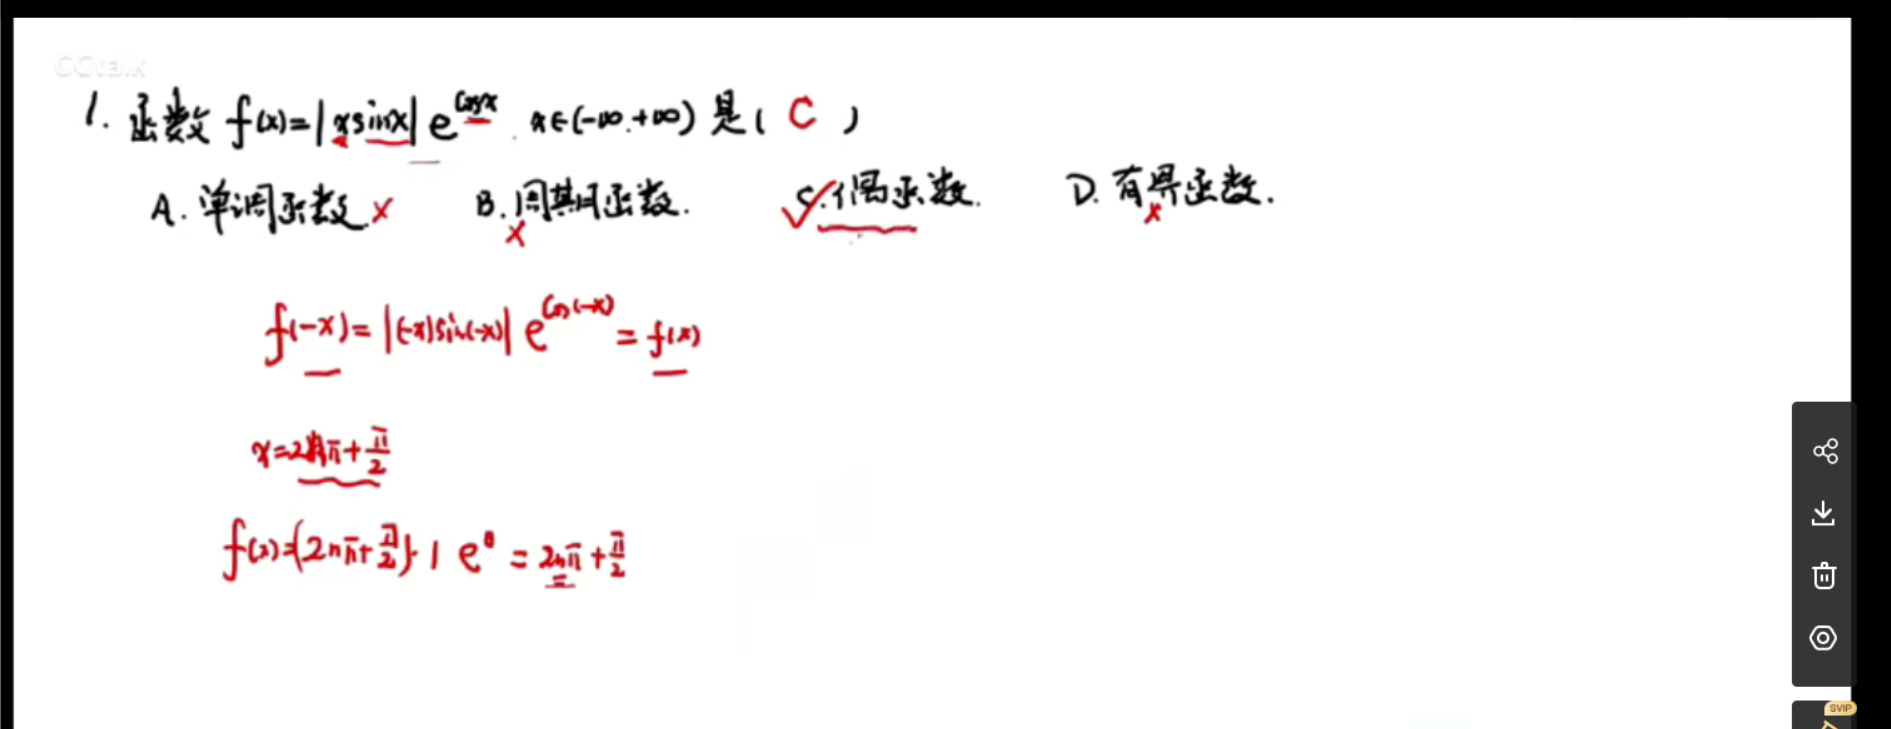 CCtalk
1. 函数 f(x)=|xsinx|e^{cosx}. x∈(-∞.+∞) 是( C )
A. 单调函数. × B. 周期函数. × √C. 偶函数. D. 有界函数. ×
f(-x)=|(-x)sin(-x)|e^{cos(-x)}=f(x)
x=2nπ+π/2
f(x)=(2nπ+π/2)·1 e^0=2nπ+π/2
SVIP